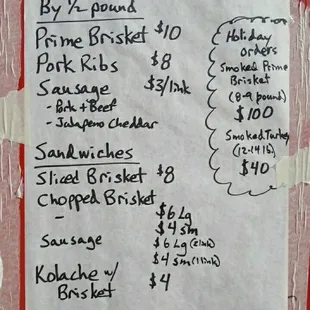 By 1/2 pound
Prime Brisket $10
Pork Ribs $8
Sausage $3/link
- Pork + Beef
- Jalapeno Cheddar
Sandwiches
Sliced Brisket $8
Chopped Brisket
- $6 Lg
$4 sm
Sausage $6 Lg (2 link)
$4 sm (1 link)
Kolache w/ $4
Brisket
Holiday
orders
Smoked Prime
Brisket
(8-9 pound)
$100
Smoked Turkey
(12-14 lb)
$40